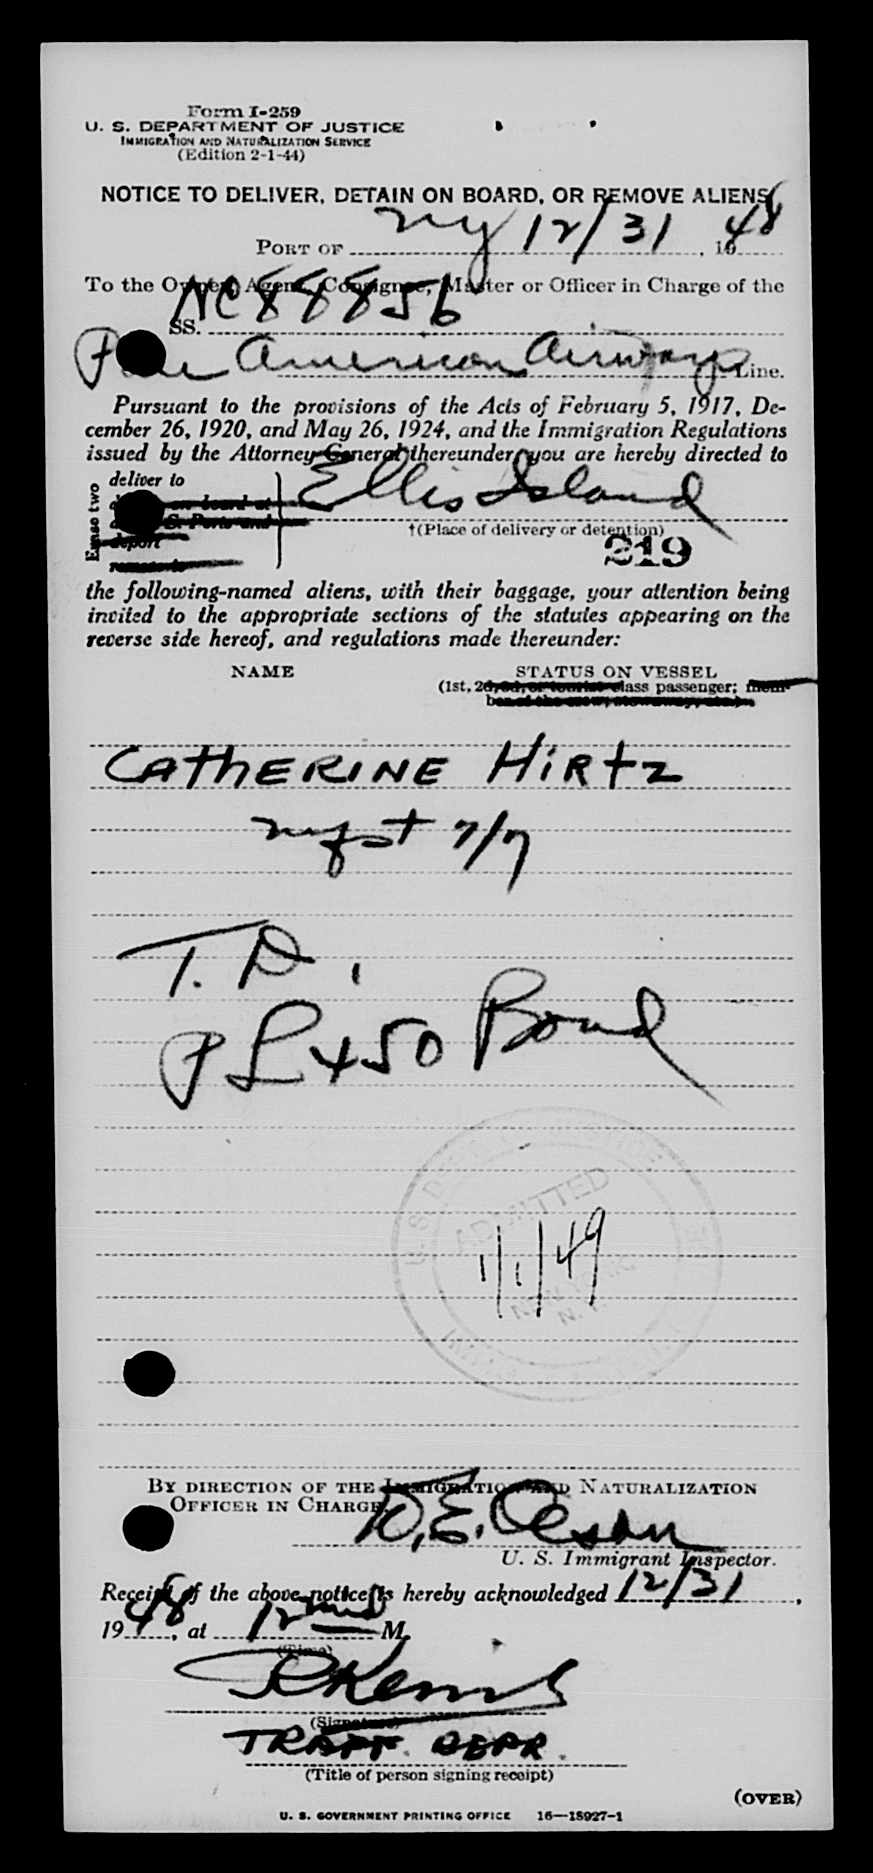 Form I-259
U. S. DEPARTMENT OF JUSTICE
IMMIGRATION AND NATURALIZATION SERVICE
(Edition 2-1-44)
NOTICE TO DELIVER, DETAIN ON BOARD, OR REMOVE ALIENS
PORT OF NY 12/31, 1948
To the Owner, Agent, Consignee, Master or Officer in Charge of the
SS. NC 88856
Pan American Airways Line.
Pursuant to the provisions of the Acts of February 5, 1917, De-
cember 26, 1920, and May 26, 1924, and the Immigration Regulations
issued by the Attorney General thereunder, you are hereby directed to
Erase two
deliver to
Ellis Island
†(Place of delivery or detention)
deport
remove to
219
the following-named aliens, with their baggage, your attention being
invited to the appropriate sections of the statutes appearing on the
reverse side hereof, and regulations made thereunder:
NAME STATUS ON VESSEL
(1st, 2d, 3d, or tourist class passenger; mem-
ber of the crew, stowaway, etc.)
CATHERINE HIRTZ
mfst 7/7
T. D.
PL 450 Bond
U. S. DEPT. OF JUSTICE
ADMITTED
1/1/49
NEW YORK
N. Y.
BY DIRECTION OF THE IMMIGRATION AND NATURALIZATION
OFFICER IN CHARGE
D. E. Olson
U. S. Immigrant Inspector.
Receipt of the above notice is hereby acknowledged 12/31,
1948, at 12 M.
(Time)
(Signature)
TRAFF. REPR.
(Title of person signing receipt)
(OVER)
U. S. GOVERNMENT PRINTING OFFICE 16—18927-1